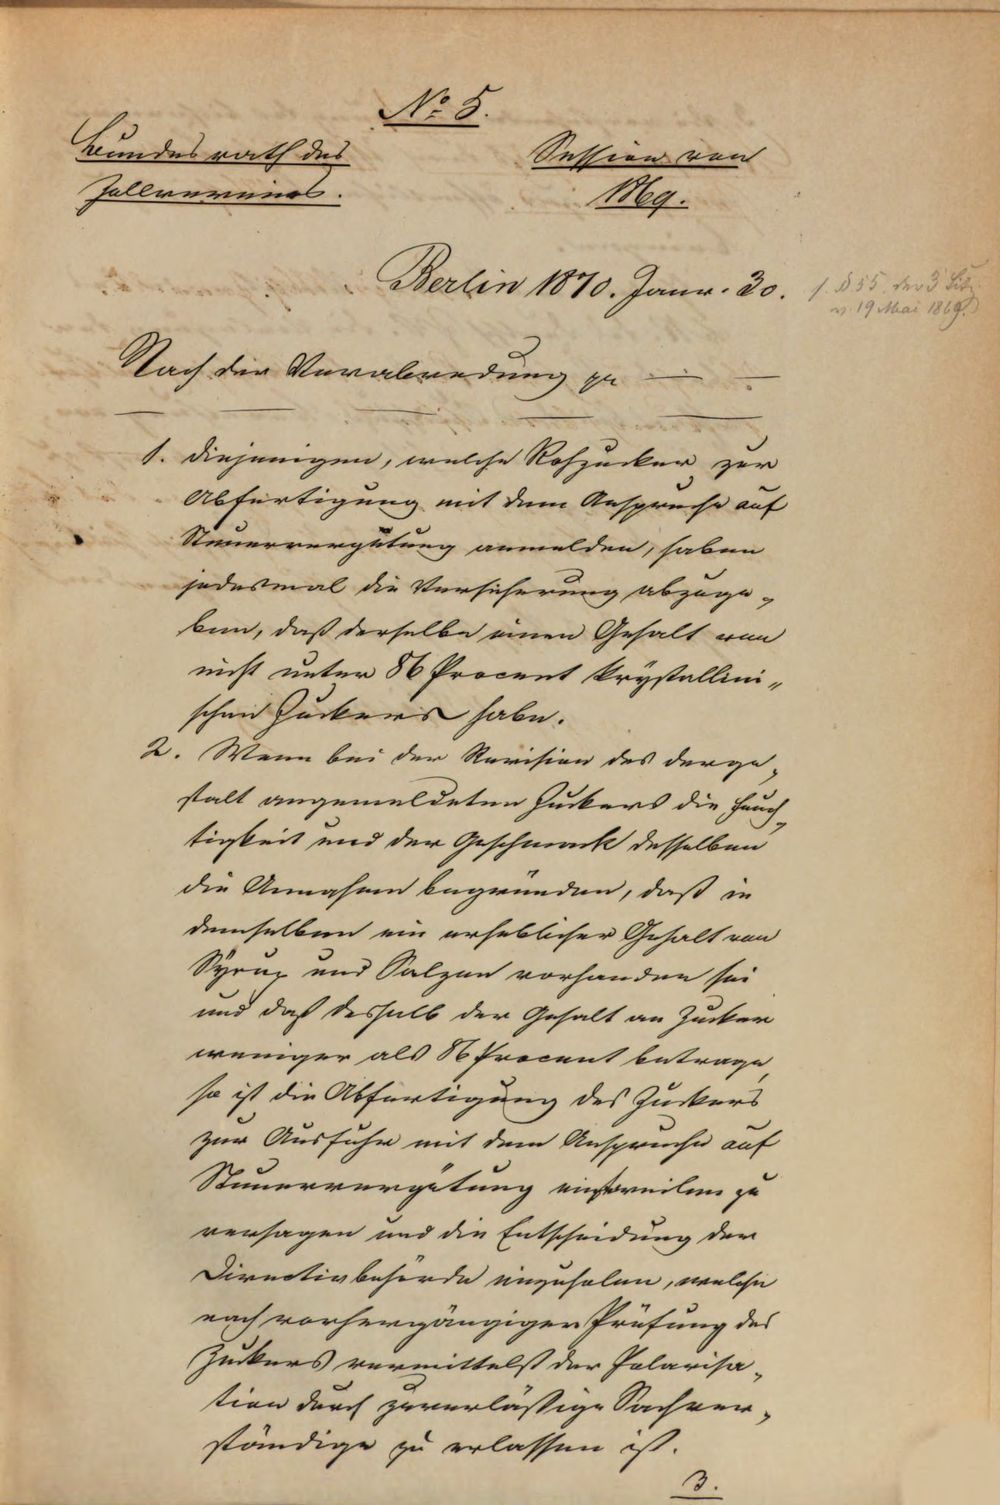 No 5.
Bundesrath des
Zollvereins.
Session von
1869.
Berlin 1870. Janr. 30.
f. § 55 der 3 Sitz.
v. 19 Mai 1869.
Nach der Verabredung zu
1. diejenigen, welche Rohzucker zur
Abfertigung mit dem Anspruche auf
Steuervergütung anmelden, haben
jedesmal die Versicherung abzuge-
ben, daß derselbe einen Gehalt von
nicht unter 86 Procent krystallini-
schen Zuckers habe.
2. Wenn bei der Revision des derge-
stalt angemeldeten Zuckers die Feuch-
tigkeit und der Geschmack desselben
die Annahme begründen, daß in
demselben ein erheblicher Gehalt von
Syrup und Salzen vorhanden sei
und daß deshalb der Gehalt an Zucker
weniger als 86 Procent betrage,
so ist die Abfertigung des Zuckers
zur Ausfuhr mit dem Anspruche auf
Steuervergütung einstweilen zu
versagen und die Entscheidung der
Directivbehörde einzuholen, welche
nach vorhergängiger Prüfung des
Zuckers vermittelst der Polarisa-
tion durch zuverläßige Sachver-
ständige zu erlassen ist.
3.